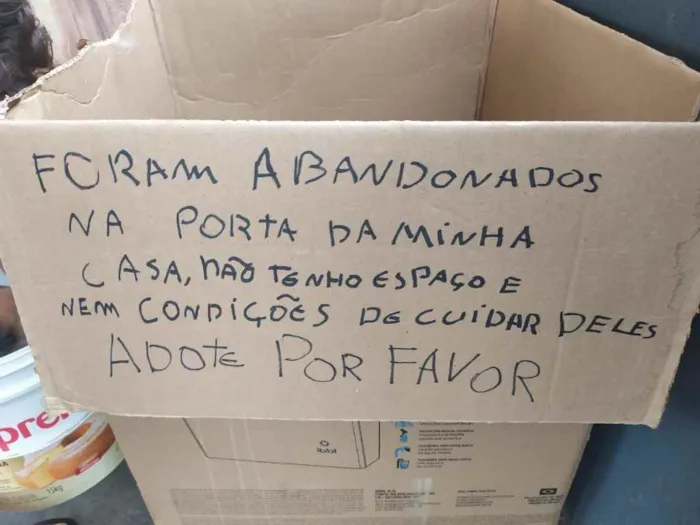 FORAM ABANDONADOS
NA PORTA DA MINHA
CASA, NÃO TENHO ESPAÇO E
NEM CONDIÇÕES DE CUIDAR DELES
ADOTE POR FAVOR
pre
15kg